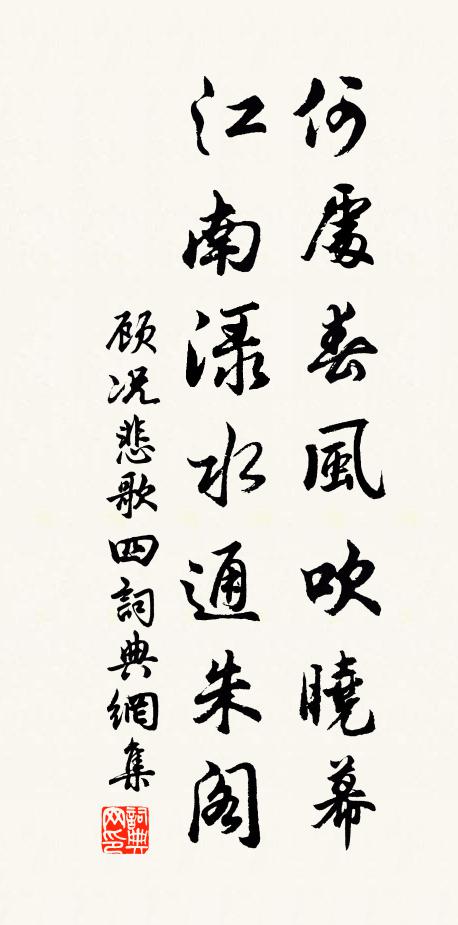 何處春風吹曉幕
江南淥水通朱閣
顾况悲歌四詞典網集
詞典网印